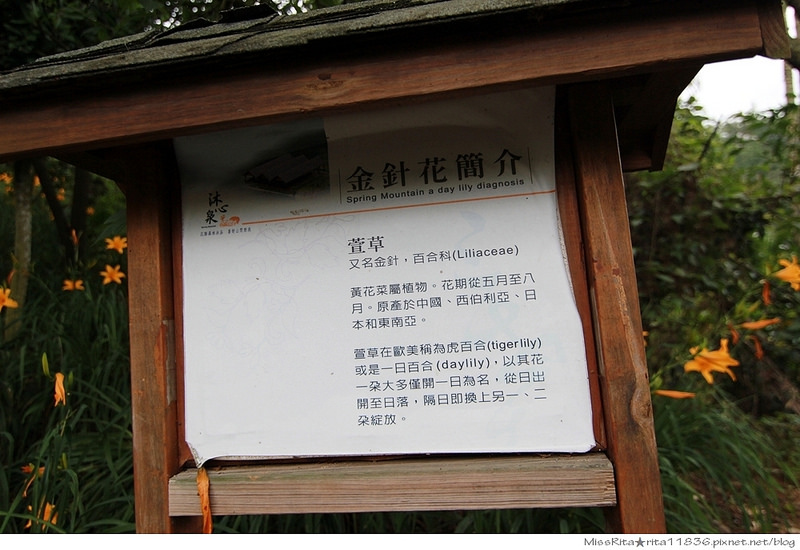 金針花簡介
Spring Mountain a day lily diagnosis
沐心泉
萱草
又名金針，百合科(Liliaceae)
黃花菜屬植物。花期從五月至八
月。原產於中國、西伯利亞、日
本和東南亞。
萱草在歐美稱為虎百合(tigerlily)
或是一日百合(daylily)，以其花
一朵大多僅開一日為名，從日出
開至日落，隔日即換上另一、二
朵綻放。
MissRita★rita11836.pixnet.net/blog